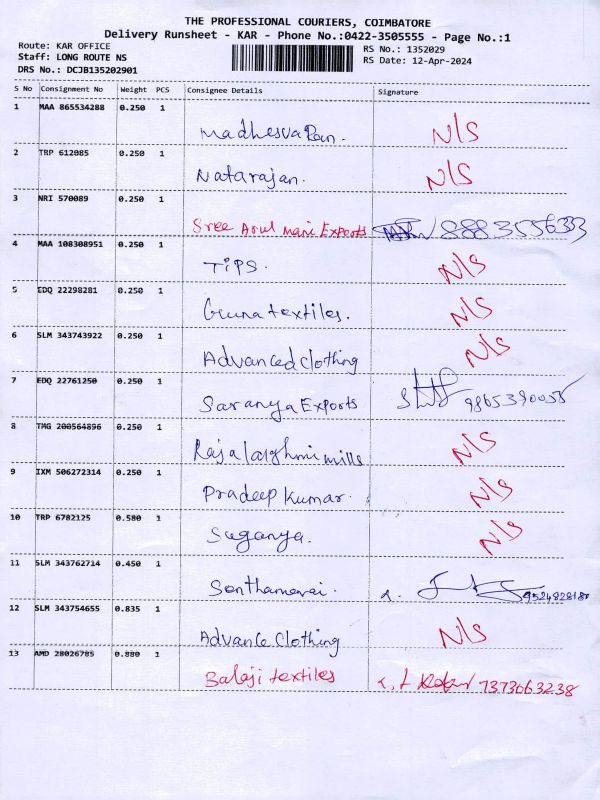 THE PROFESSIONAL COURIERS, COIMBATORE
Delivery Runsheet - KAR - Phone No.:0422-3505555 - Page No.:1
Route: KAR OFFICE RS No.: 1352029
Staff: LONG ROUTE NS RS Date: 12-Apr-2024
DRS No.: DCJB135202901
S No Consignment No Weight PCS Consignee Details Signature
1 MAA 865534288 0.250 1
Madhesvaran. N/S
2 TRP 612085 0.250 1
Natarajan. N/S
3 NRI 570089 0.250 1
Sree Arul mani Exports
4 MAA 108308951 0.250 1
TIPS. N/S
5 EDQ 22298281 0.250 1
Guna textiles. N/S
6 SLM 343743922 0.250 1
Advanced clothing N/S
7 EDQ 22761250 0.250 1
Saranya Exports
8 TMG 200564896 0.250 1
Rajalakshmi mills N/S
9 IXM 506272314 0.250 1
Pradeep kumar. N/S
10 TRP 6782125 0.580 1
Suganya. N/S
11 SLM 343762714 0.450 1
Senthamarai.
12 SLM 343754655 0.835 1
Advance Clothing N/S
13 AMD 28026785 0.880 1
Balaji textiles 7373663238